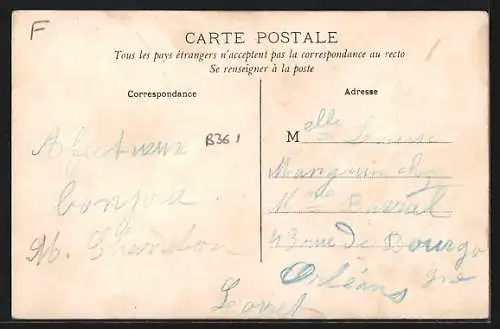 F
CARTE POSTALE
Tous les pays étrangers n'acceptent pas la correspondance au recto
Se renseigner à la poste
Correspondance
Adresse
B36 1
Afectueux
bonjou
M.
Melle Louise
Manguin chez
Mme
43 rue de Bourgo
gne
Orléans
Loiret